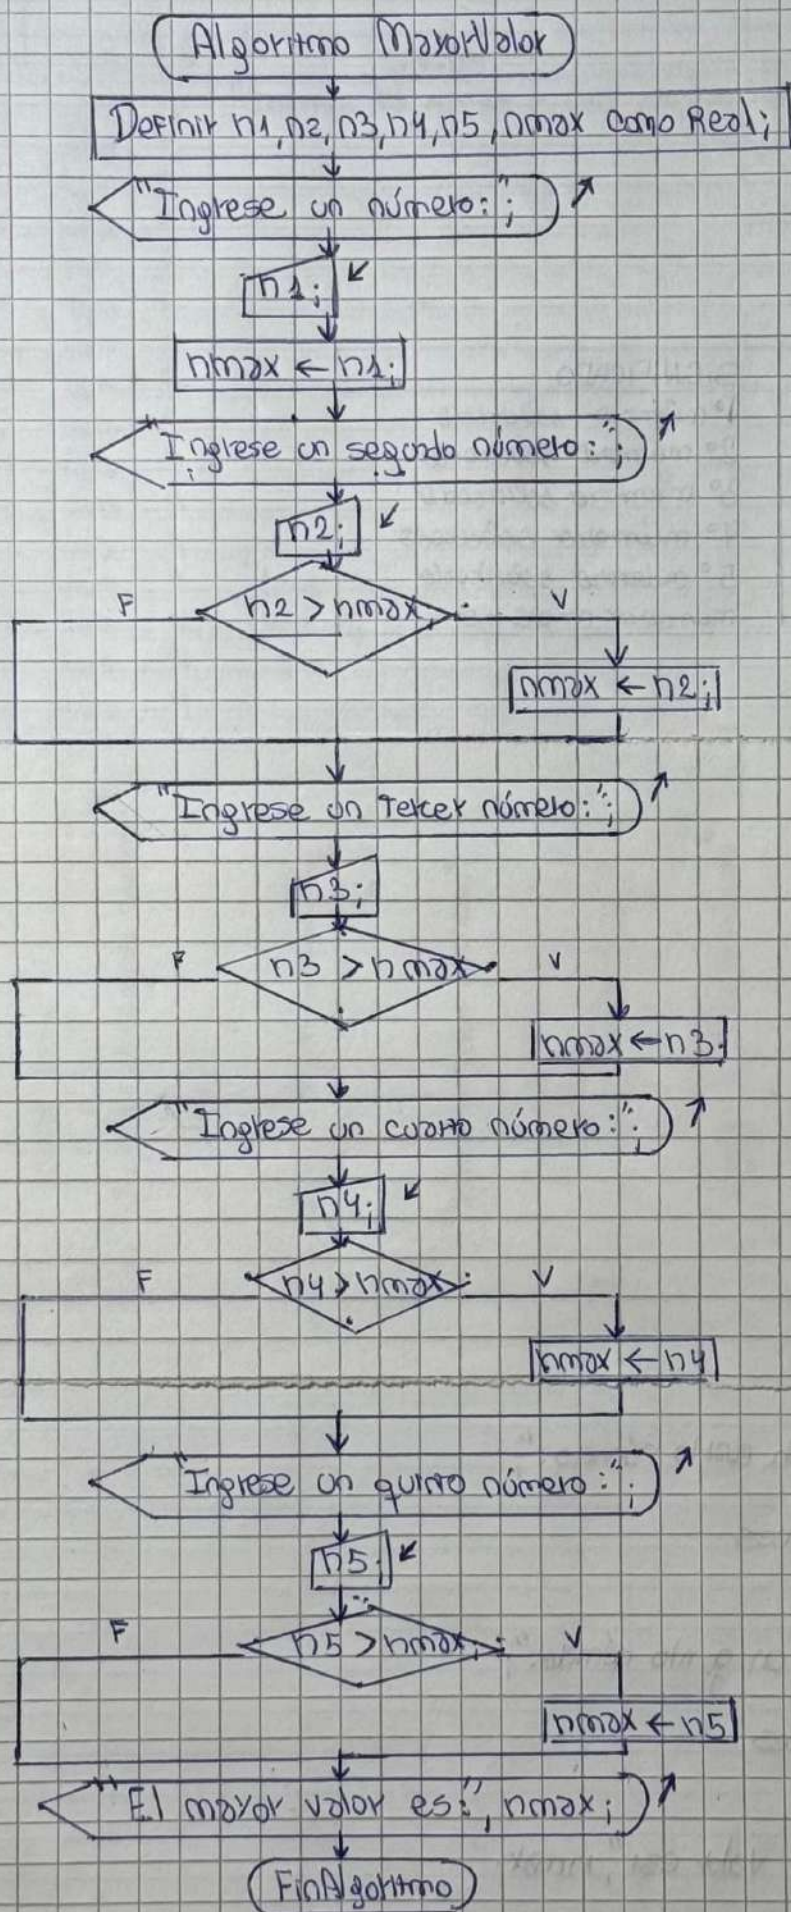 Algoritmo MayorValor
Definir n1, n2, n3, n4, n5, nmax como Real;
"Ingrese un número:";
n1;
nmax ← n1;
"Ingrese un segundo número:";
n2;
F n2 > nmax V
nmax ← n2;
"Ingrese un Tercer número:";
n3;
F n3 > nmax V
nmax ← n3
"Ingrese un cuarto número:";
n4;
F n4 > nmax V
nmax ← n4
"Ingrese un quinto número:";
n5;
F n5 > nmax; V
nmax ← n5
"El mayor valor es:", nmax;
FinAlgoritmo